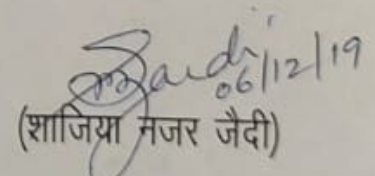 06/12/19
(शाजिया नजर जैदी)